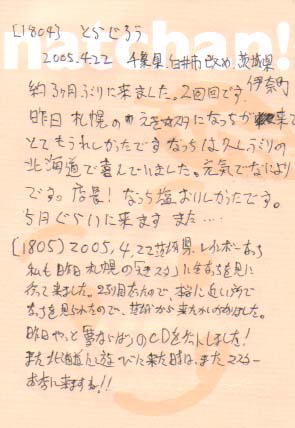 natchan!
[1804] とらじろう
2005.4.22 千葉県白井市改め、茨城県
伊奈町
約3ヶ月ぶりに来ました。2回目です。
昨日札幌の になっちが来て
とてもうれしかったですなっちは久しぶりの
北海道で喜んでいました。元気でなにより
です。店長!なっち塩おいしかたです。
5月ぐらいに来ます また…
[1805] 2005,4,22茨城県 レインボーなっち
私も昨日札幌の「えきスタ」に生なっちを見に
行って来ました。2列目だったので、本当に近い所で
なっちを見られたので、茨城から来たかいがありました。
昨日やっと「夢ならば」のCDをゲットしました!
また北海道に遊びに来た時は、またマスター
お店に来ますね!!